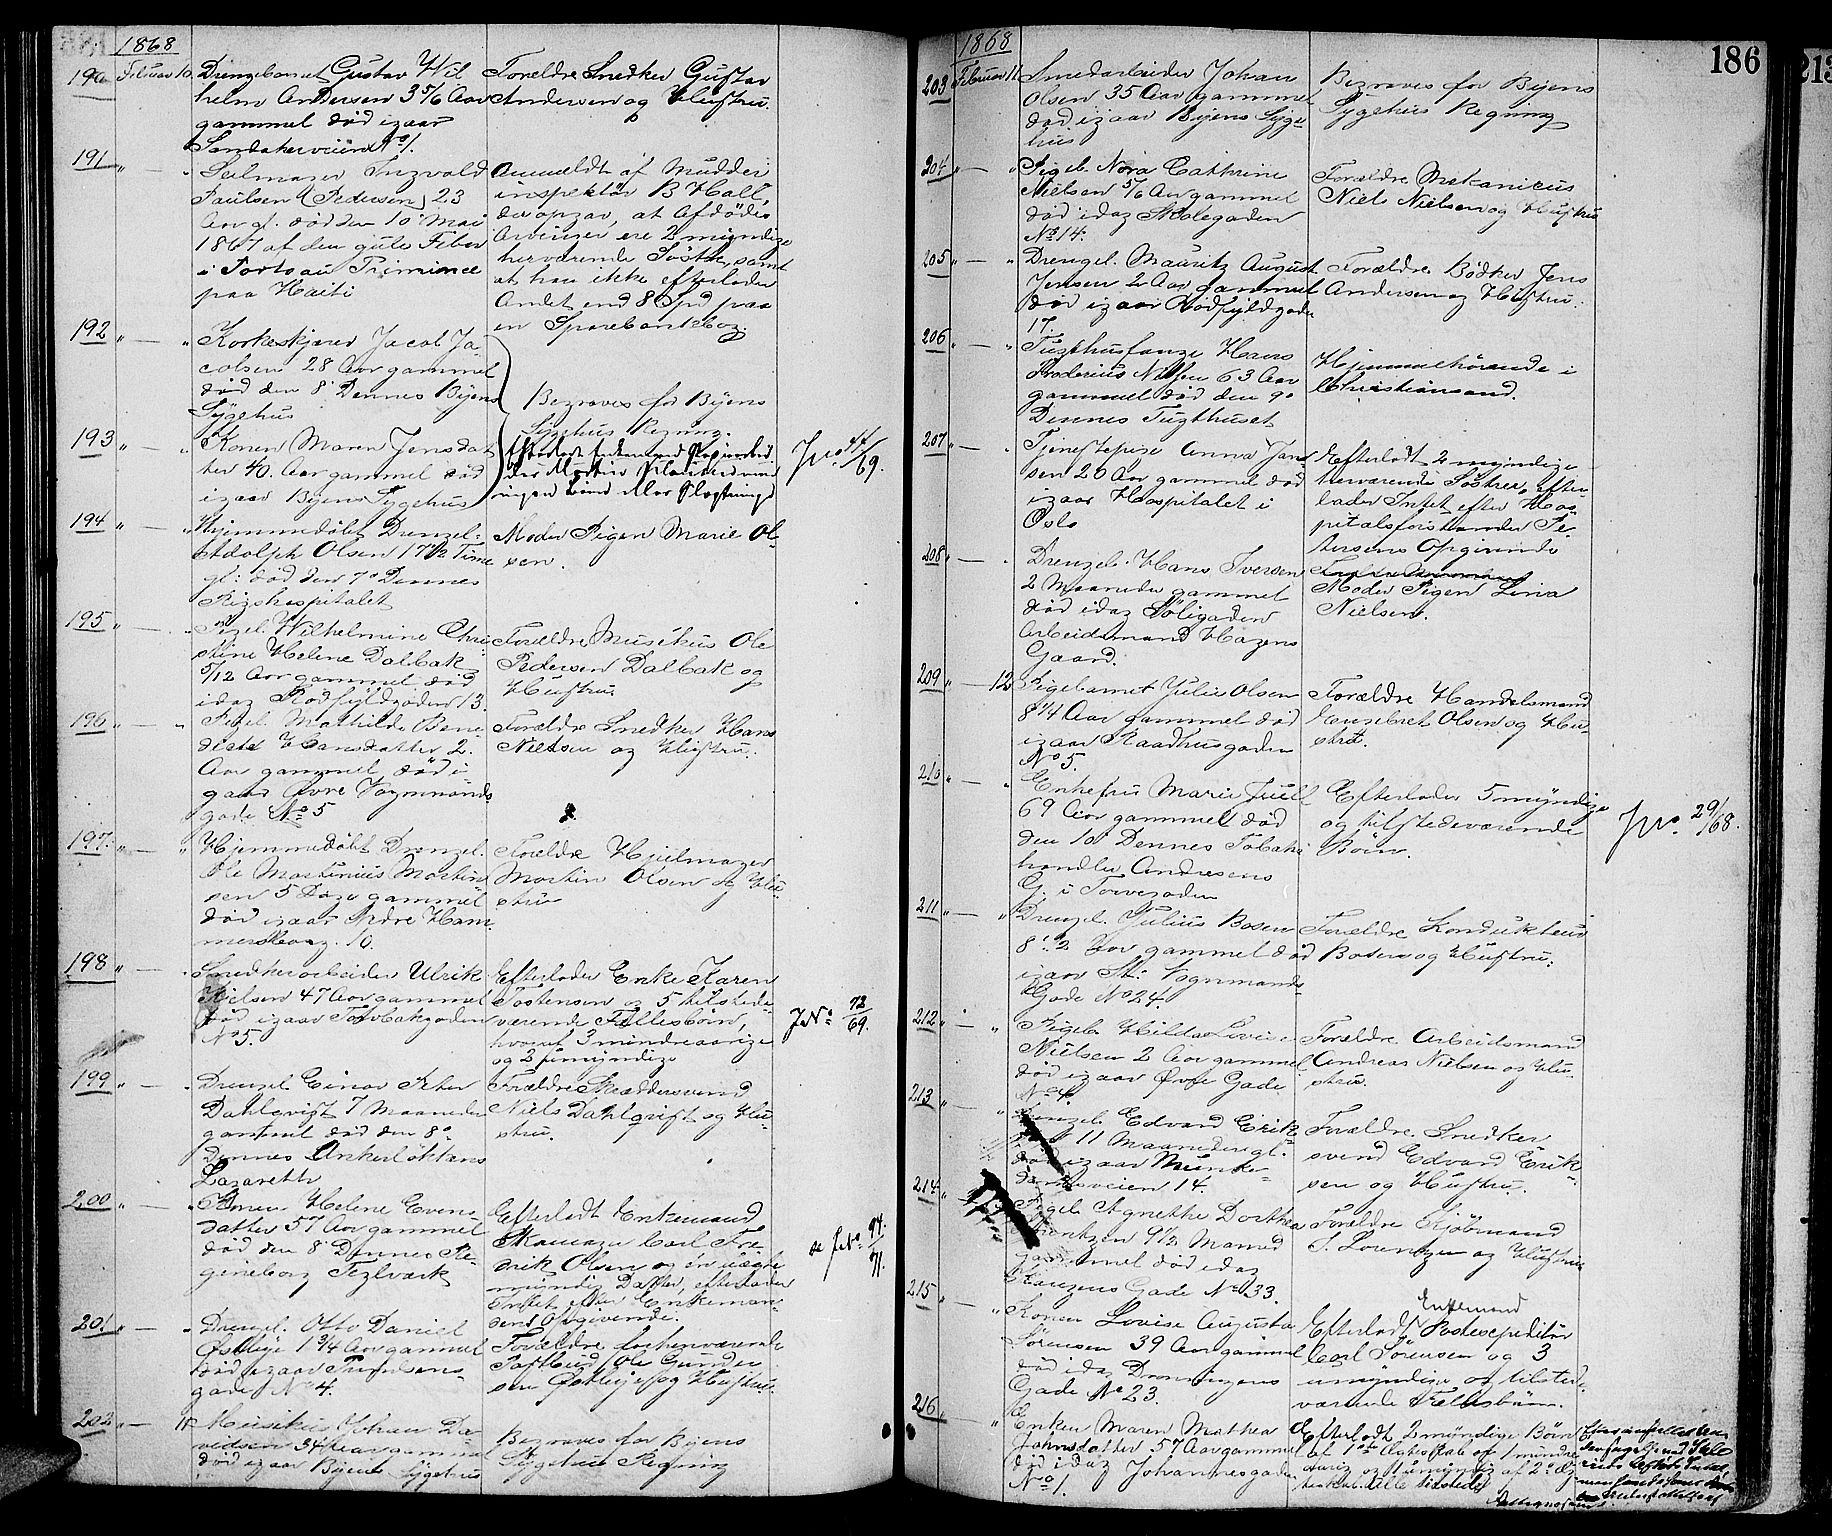 1868
190 Februar 10 Drengebarnet Gustav Wil
helm Andersen 3 5/6 Aar
gammel død igaar
Sandakerveien No 1.
Forældre Snedker Gustav
Andersen og Hustru.
191 " — " Seilmager Ingvald
Paulsen (Pedersen) 23
Aar gl. død den 10 Mai
1867 af den gule Feber
i Portoau Prinince
paa Haiti
Anmeldt af Mudder
inspektør B Hall,
der opgav, at Afdødes
Arvinger ere 2 myndige
herværende Søstre, samt
at han ikke efterlader
Andet end 8 Spd paa
en Sparebankbog.
192 " — " Korkeskjærer Jacob Ja-
cobsen 28 Aar gammel
død den 8 Dennes Byens
Sygehus
Begraves for Byens
Sygehus Regning.
193 " — " Konen Maren Jensdat
ter 40 Aar gammel død
igaar Byens Sygehus
Jno 44/69.
194 " — " Hjemmedøbt Drengeb.
Adolph Olsen 17 1/2 Time
gl. død den 7de Dennes
Rigshospitalet
Moder Pigen Marie Ol-
sen.
195 " — " Pigeb. Wilhelmine Chri
stine Helene Dalbak
5/12 Aar gammel død
idag Rodfyldgaden 13.
Forældre Musikus Ole
Pedersen Dalbak og
Hustru
196 " — " Pigeb. Mathilde Bene
dicte Hansdatter 2
Aar gammel død i
gaar Øvre Vognmands
gade No 5
Forældre Snedker Hans
Nielsen og Hustru.
197. " — " Hjemmedøbt Drengeb.
Ole Martinius Martin
sen 5 Dage gammel
død igaar Nedre Ham
mersborg 10.
Forældre Hjulmager
Martin Olsen og Hu-
stru
198 " — " Snedkerarbeider Ulrik
Nielsen 47 Aar gammel
død igaar Torvbakgaden
No 5.
Efterlader Enke Karen
Tostensen og 5 tilstede
værende Fellesbørn,
hvoraf 3 mindreaarige
og 2 umyndige
JNo 72/69.
199 " — " Drengeb. Einar Peter
Dahlqvist 7 Maaneder
gammel død den 8de
Dennes Ankerløkkens
Lazareth
Forældre Skræddersvend
Niels Dahlqvist og Hu-
stru.
200 " — " Konen Helene Evens-
datter 57 Aar gammel
død den 8 Dennes Re-
gineborg Teglværk
Efterladt Enkemand
Skomager Carl Fre-
drik Olsen og én uægte
myndig Datter, efterlader
Intet efter Enkeman-
dens Opgivende.
se JNo 94/71.
201 " — " Drengeb. Otto Daniel
Østlige 1 3/4 Aar gammel
død igaar
gade No 4.
Forældre forhenværende
Postbud Ole Gunder
sen Østlige og Hustru
202 " — 11 Musikus Johan Da-
vidsen 34 Aar gammel
død igaar Byens Sygehus
Begraves for Byens
Sygehus Regning
186
213
1868
203 Februar 11 Smedarbeider Johan
Olsen 35 Aar gammel
død igaar Byens Syge-
hus
Begraves for Byens
Sygehus Regning
204 " — " Pigeb. Nora Cathrine
Nielsen 5/6 Aar gammel
død idag Skolegaden
No 14.
Forældre Mekanicus
Niels Nielsen og Hustru
205 " — " Drengeb. Mauritz August
Jensen 2 Aar gammel
død igaar Rodfyldgade
17.
Forældre Bødker Jens
Andersen og Hustru.
206 " — " Tugthusfange Hans
Frederius Nilsen 63 Aar
gammel død den 9de
Dennes Tugthuset
Hjemmehørende i
Christianssand.
207 " — " Tjenestepige Anna Jan
sen 20 Aar gammel død
igaar Hospitalet i
Oslo
Efterladt 2 myndige
herværende Søstre, efter
lader Intet efter Hos-
pitalsforstander Pe-
tersens Opgivende
208 " — " Drengeb. Hans Iversen
2 Maaneder gammel
død idag Søligaden
Arbeidsmand Hagens
Gaard.
Moder Pigen Lina
Nielsen.
209 " — 12 Pigebarnet Julie Olsen
8 1/4 Aar gammel død
igaar Raadhusgaden
No 5.
Forældre Handelsmand
Engebret Olsen og Hu-
stru.
210 " — " Enkefru Marie Juell
69 Aar gammel død
den 10 Dennes Tobaks
handler Andresens
G. i Torvegaden
Efterlader 5 myndige
og tilstedeværende
Børn.
Jno. 29/68.
211 " — " Drengeb. Julius Bosen
8 1/2 Aar gammel død
igaar St. Vognmands-
Gade No 24.
Forældre Kondukteur
Bosen og Hustru.
212 " — " Pigeb. Hilda Lovise
Nielsen 2 Aar gammel
død igaar Øvre Gade
No 4.
Forældre Arbeidsmand
Andreas Nielsen og Hu-
stru.
213 " — " Drengeb. Edvard Erik-
11 Maaneder gl.
død igaar Munke-
damsveien 14.
Forældre Snedker
svend Edvard Erik-
sen og Hustru.
214 " Pigeb. Agnethe Dorthea
Lorentzen 9 1/2 Maaned
gammel død idag
Gade No 33.
Forældre Kjøbmand
S. Lorentzen og Hustru
215 " " Konen Lovise Augusta
Sørensen 39 Aar gammel
død idag Dronningens
Gade No 23.
Enkemand
Efterladt Postexpeditør
Carl Sørensen og 3
umyndige og tilstede-
værende Fellesbørn.
216 " " Enken Maren Mathea
Johnsdatter 57 Aar gammel
død idag Johannesgaden
No 1.
Efterladt 2 myndige Børn
af 1ste Ægteskab og 1 mindre
aarig og 1 umyndig af 2det Æg
teskab. alle tilstede